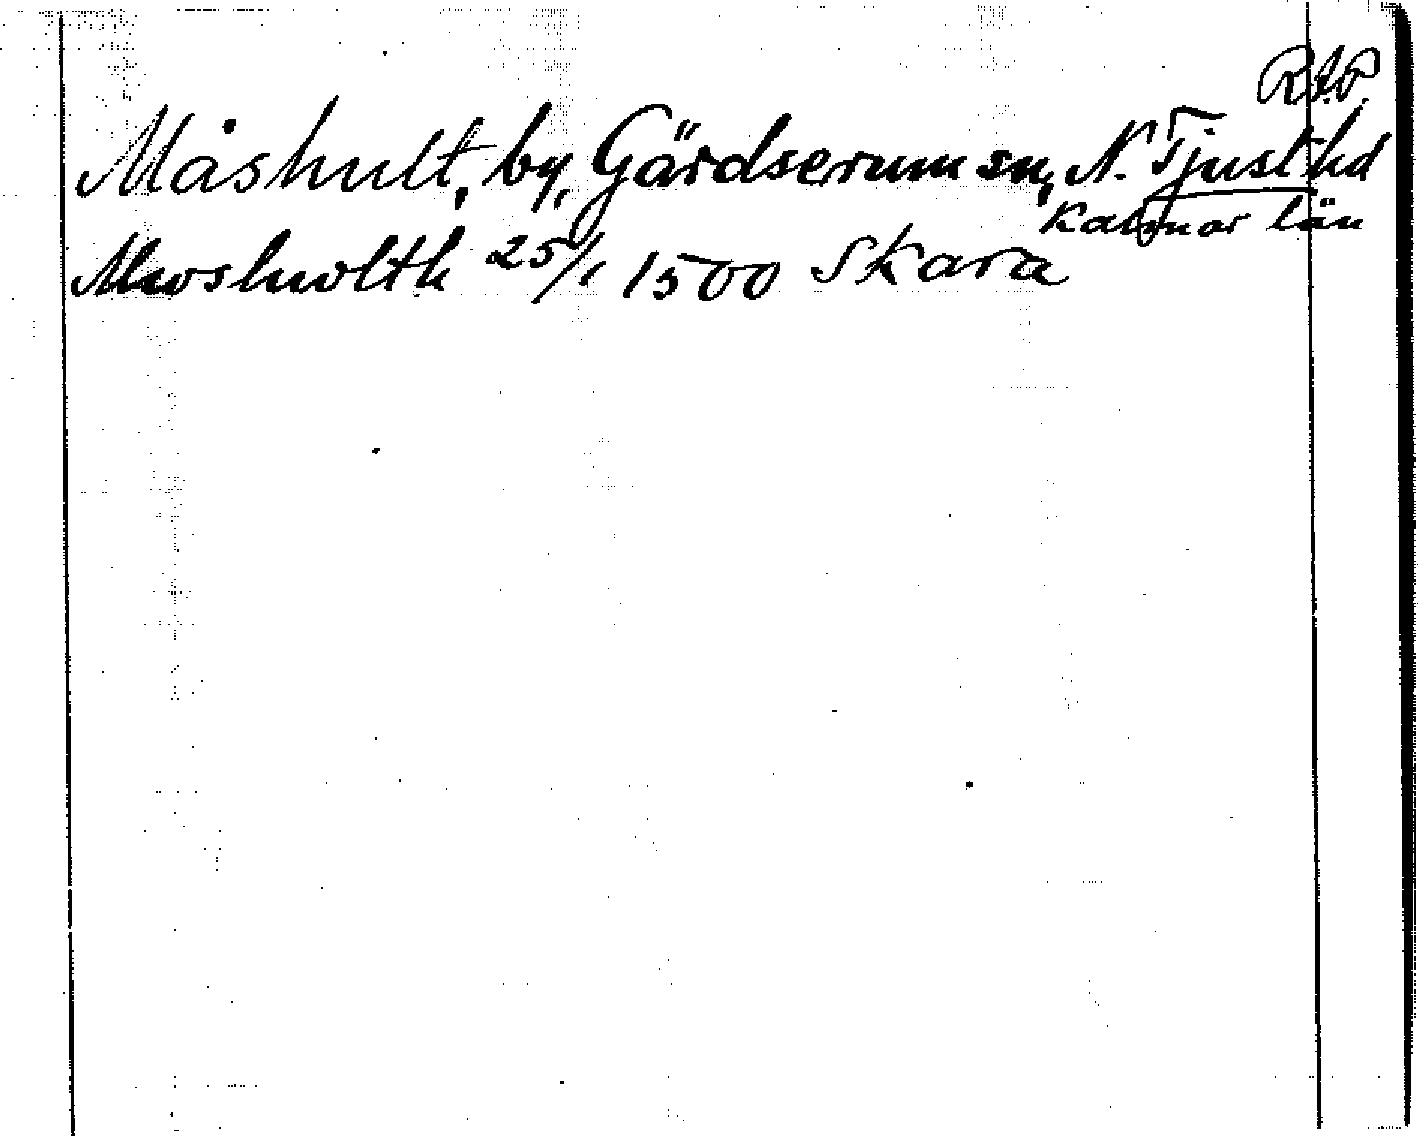 RAP
Måshult, by, Gärdserum sn, N. Tjust hd
Kalmar län
Mwshwlth 25/1 1500 Skara